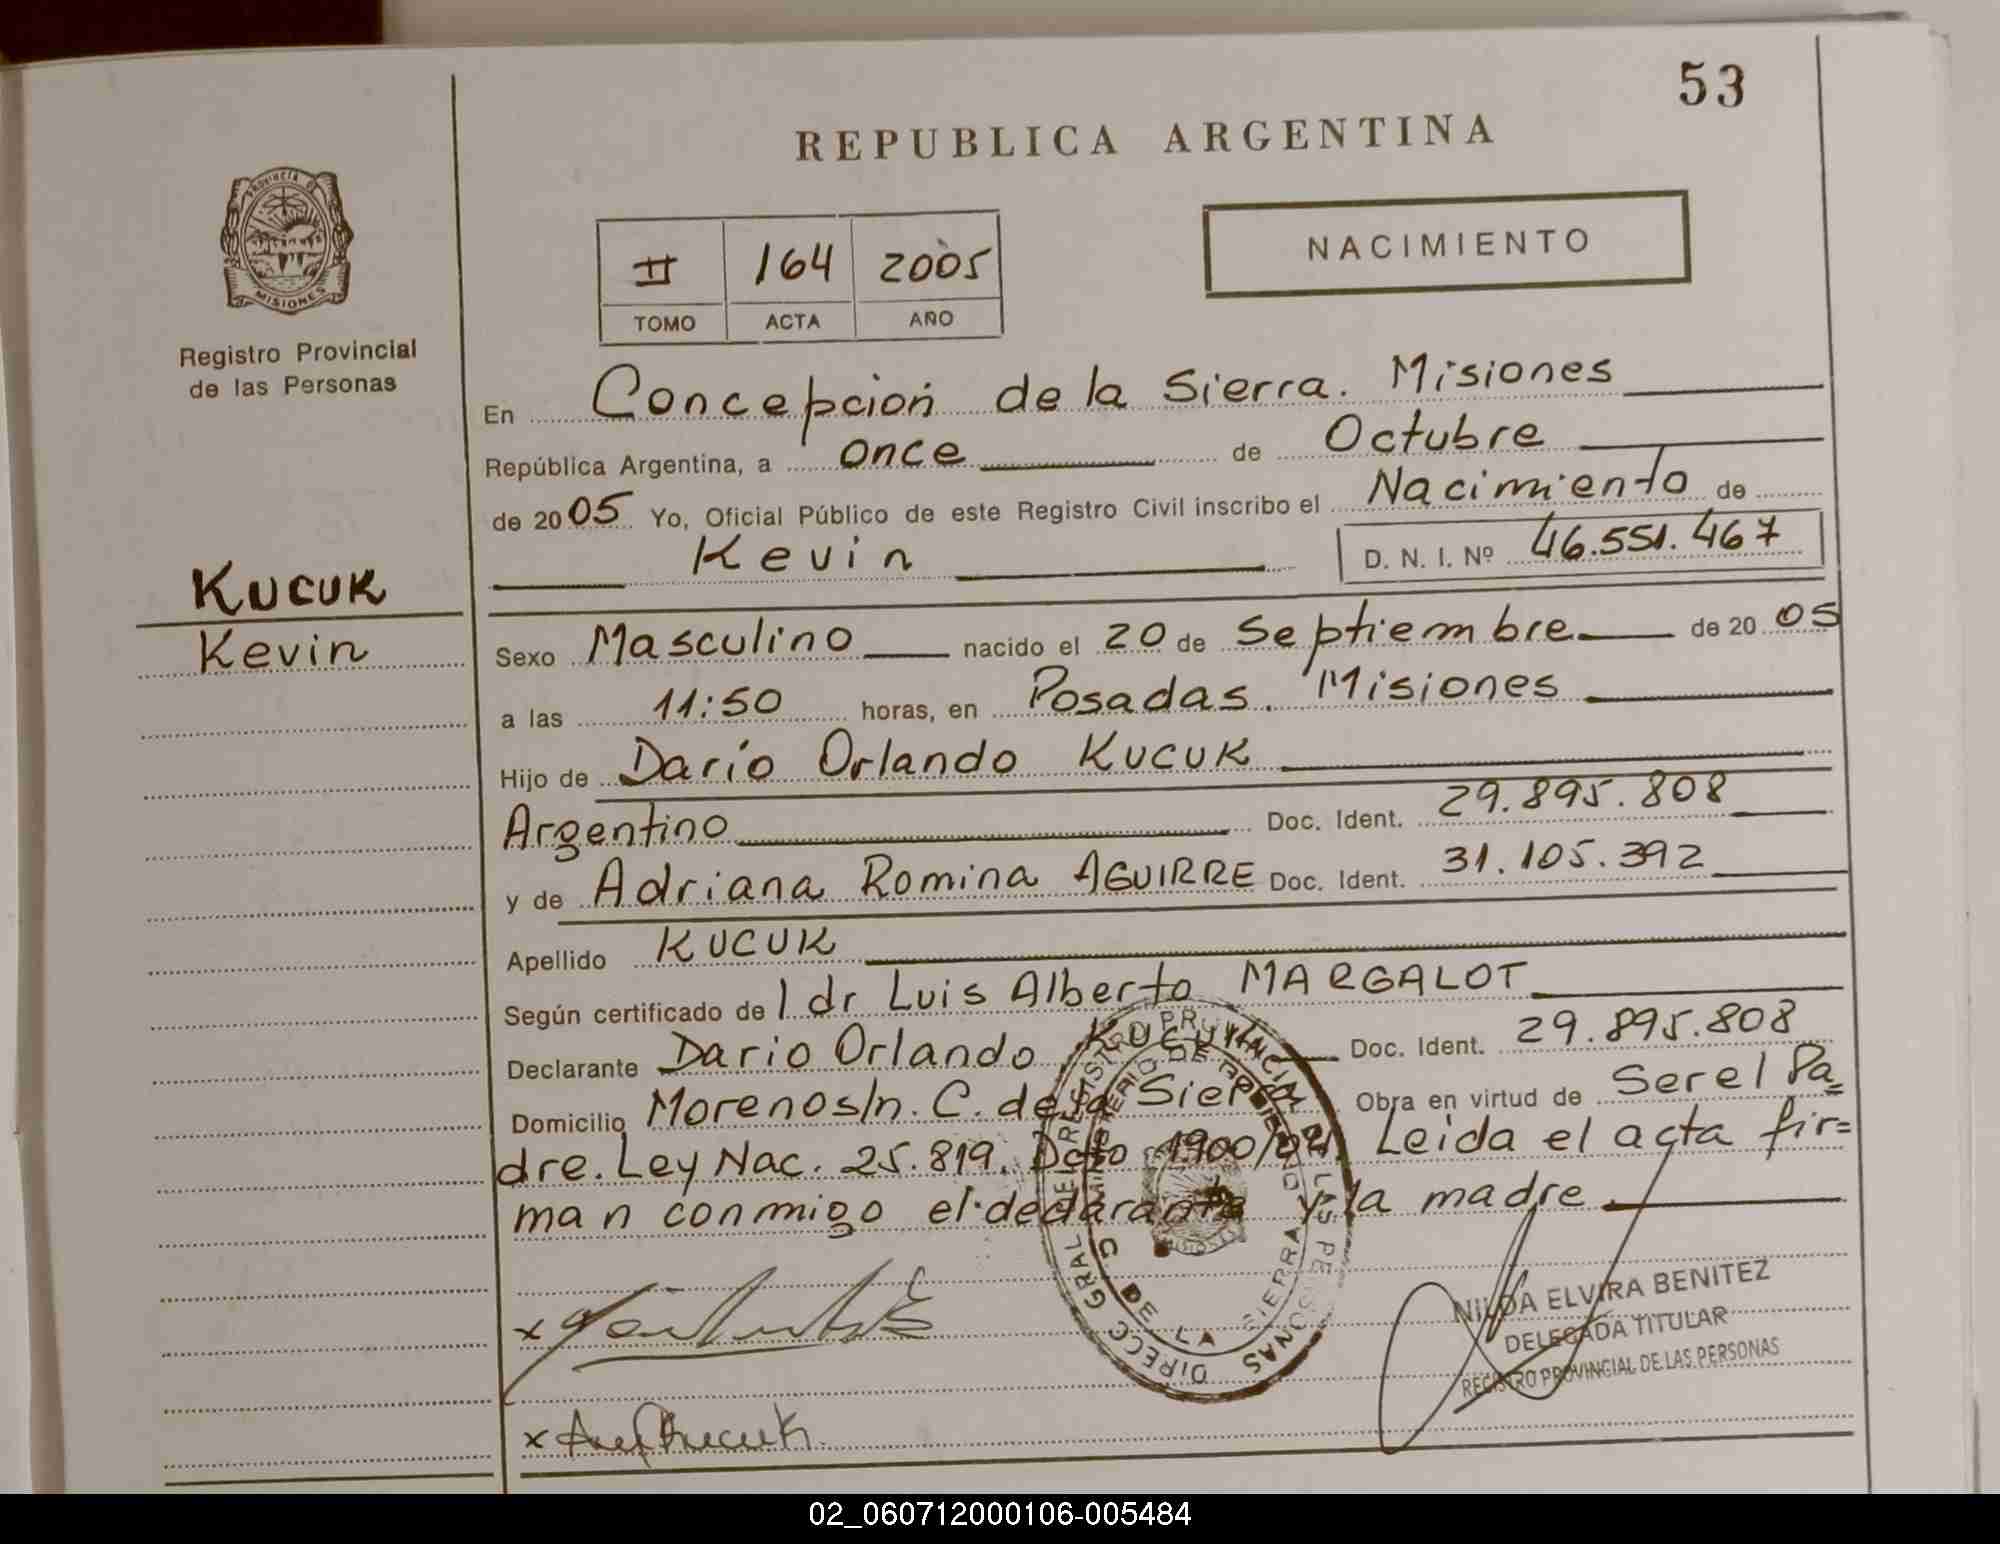 53
REPUBLICA ARGENTINA
PROVINCIA DE
MISIONES
Registro Provincial
de las Personas
II 164 2005
TOMO ACTA AÑO
NACIMIENTO
En Concepción de la Sierra. Misiones
República Argentina, a once de Octubre
de 2005 Yo, Oficial Público de este Registro Civil inscribo el Nacimiento de
Kevin D. N. I. Nº 46.551.467
KUCUK
Kevin
Sexo Masculino nacido el 20 de Septiembre de 2005
a las 11:50 horas, en Posadas. Misiones
Hijo de Dario Orlando KUCUK
Argentino Doc. Ident. 29.895.808
y de Adriana Romina AGUIRRE Doc. Ident. 31.105.392
Apellido KUCUK
Según certificado de l dr Luis Alberto MARGALOT
Declarante Dario Orlando KUCUK Doc. Ident. 29.895.808
Domicilio Moreno s/n. C. de la Sierra Obra en virtud de Ser el Pa=
dre. Ley Nac. 25.819. Dcto 1900/04. Leida el acta fir=
man conmigo el declarante y la madre
DIRECC GRAL DEL REGISTRO PROVINCIAL DE LAS PERSONAS
C. DE LA SIERRA
NILDA ELVIRA BENITEZ
DELEGADA TITULAR
REGISTRO PROVINCIAL DE LAS PERSONAS
02_060712000106-005484